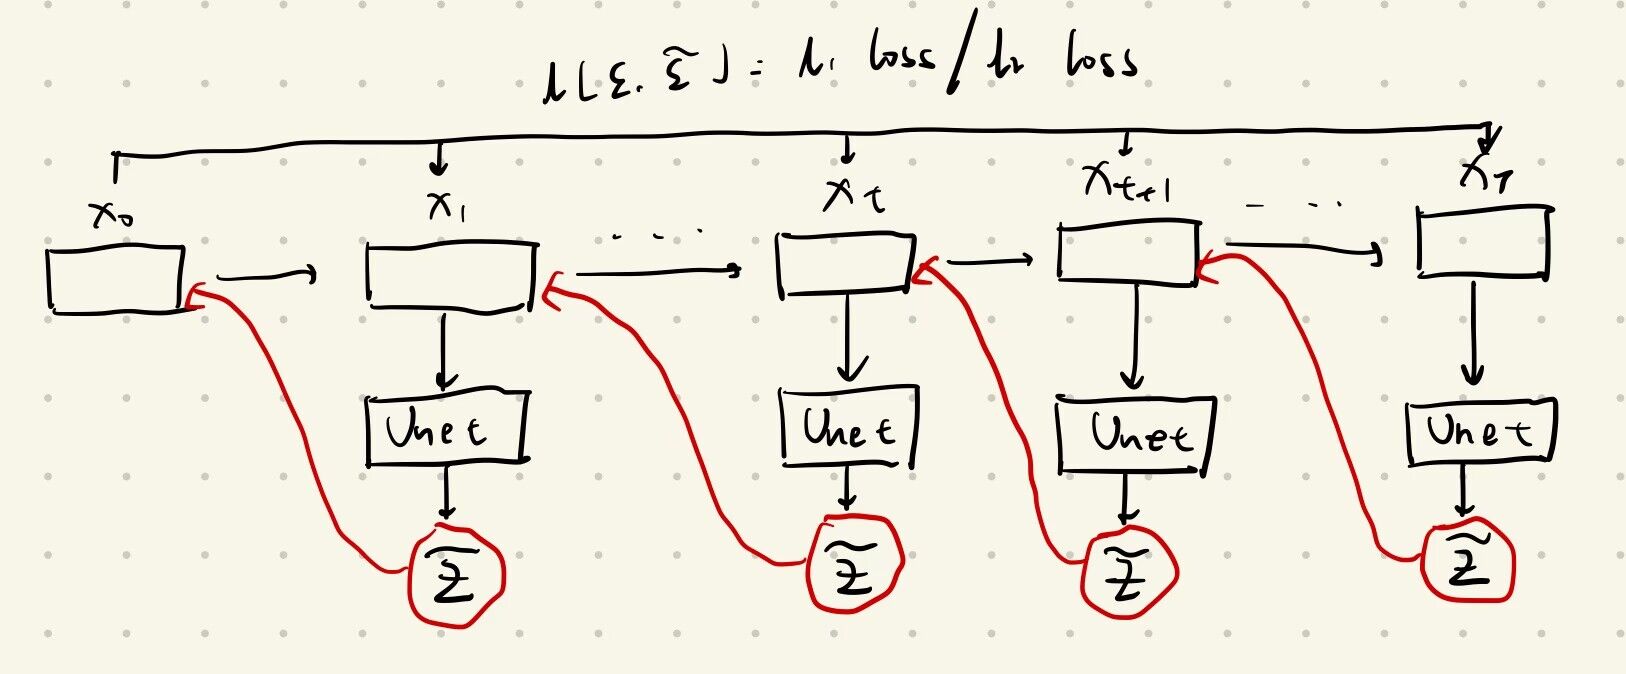 L[ε, ε̃] = L₁ loss / L₂ loss
x₀ x₁ . . . xₜ xₜ₊₁ - - - x_T
Unet Unet Unet Unet
z̃ z̃ z̃ z̃